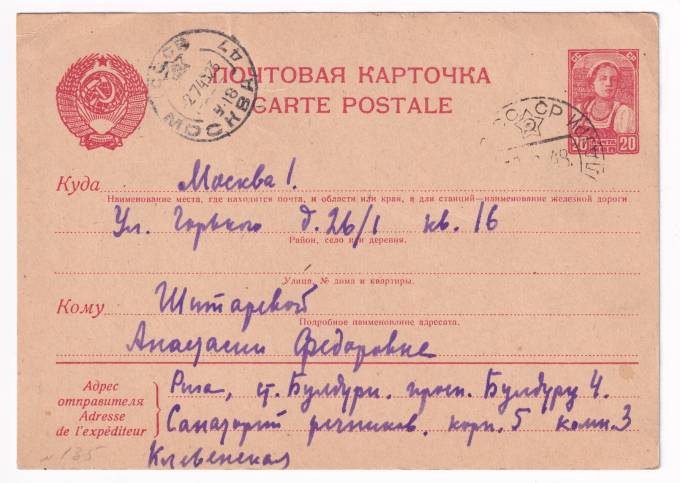 ПОЧТОВАЯ КАРТОЧКА
CARTE POSTALE
МОСКВА 47
20 ПОЧТА 20
Куда Москва 1.
Наименование места, где находится почта, и области или края, а для станций—наименование железной дороги
Ул. Горького д. 26/1 кв. 16
Район, село или деревня.
Улица, № дома и квартиры.
Кому
Подробное наименование адресата.
Анастасии Федоровне
Адрес отправителя
Adresse de l'expéditeur
Рига, ст. Булдури. просп. Булдуру 4.
Санаторий речников. корп. 5 комн. 3
135